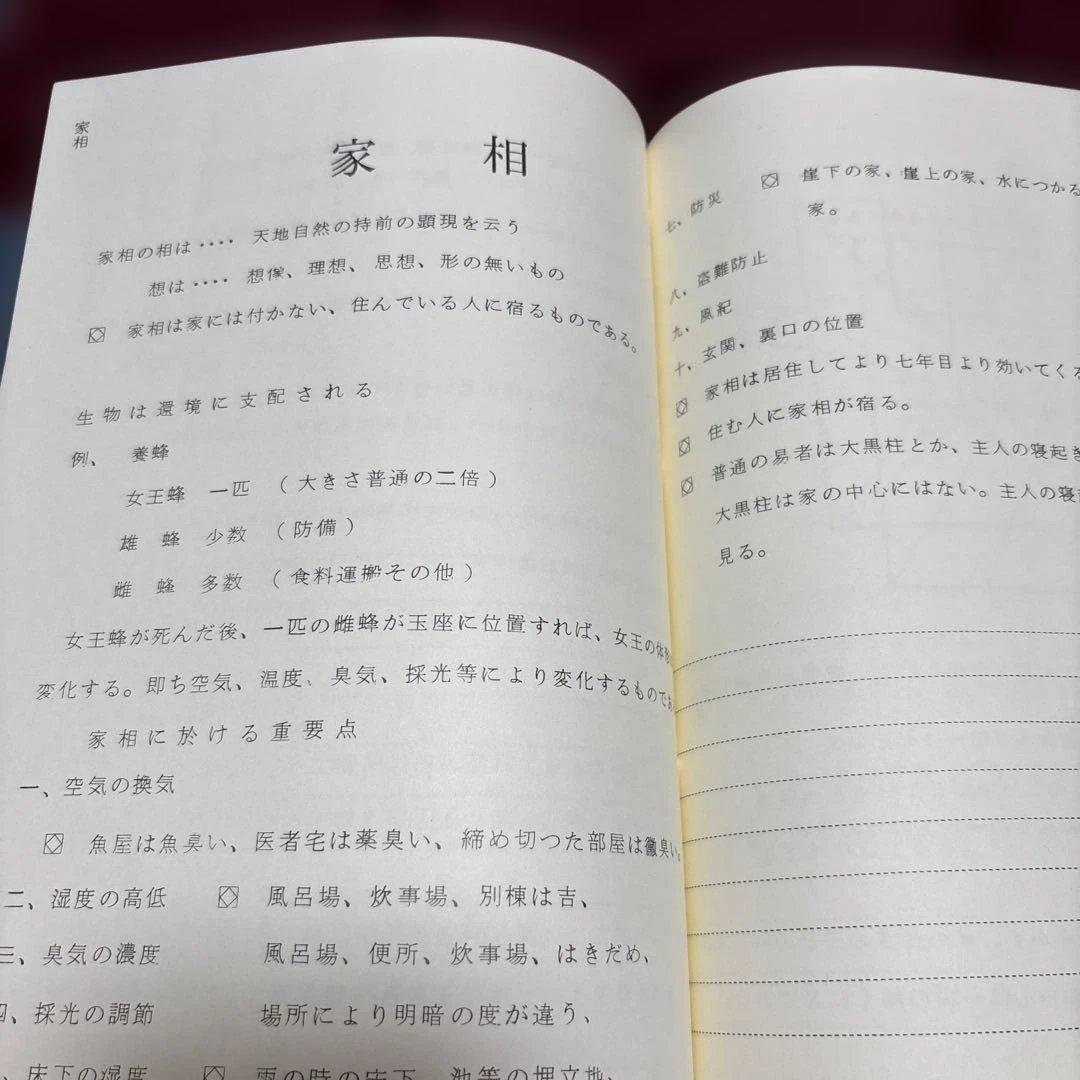 家相
家相
家相の相は‥‥ 天地自然の持前の顕現を云う
想は‥‥ 想像、理想、思想、形の無いもの
家相は家には付かない、住んでいる人に宿るものである。
生物は還境に支配される
例、 養蜂
女王蜂 一匹 (大きさ普通の二倍)
雄蜂 少数 (防備)
雌蜂 多数 (食料運搬その他)
女王蜂が死んだ後、一匹の雌蜂が玉座に位置すれば、女王の体形
変化する。即ち空気、温度、臭気、採光等により変化するものであ
家相に於ける重要点
一、空気の換気
魚屋は魚臭い、医者宅は薬臭い、締め切つた部屋は黴臭い。
二、湿度の高低 風呂場、炊事場、別棟は吉、
三、臭気の濃度 風呂場、便所、炊事場、はきだめ、
四、採光の調節 場所により明暗の度が違う、
、床下の湿度 雨の時の床下、池等の埋立地、
七、防災 崖下の家、崖上の家、水につかる
家。
八、盗難防止
九、風紀
十、玄関、裏口の位置
家相は居住してより七年目より効いてくる
住む人に家相が宿る。
普通の易者は大黒柱とか、主人の寝起き
大黒柱は家の中心にはない。主人の寝
見る。